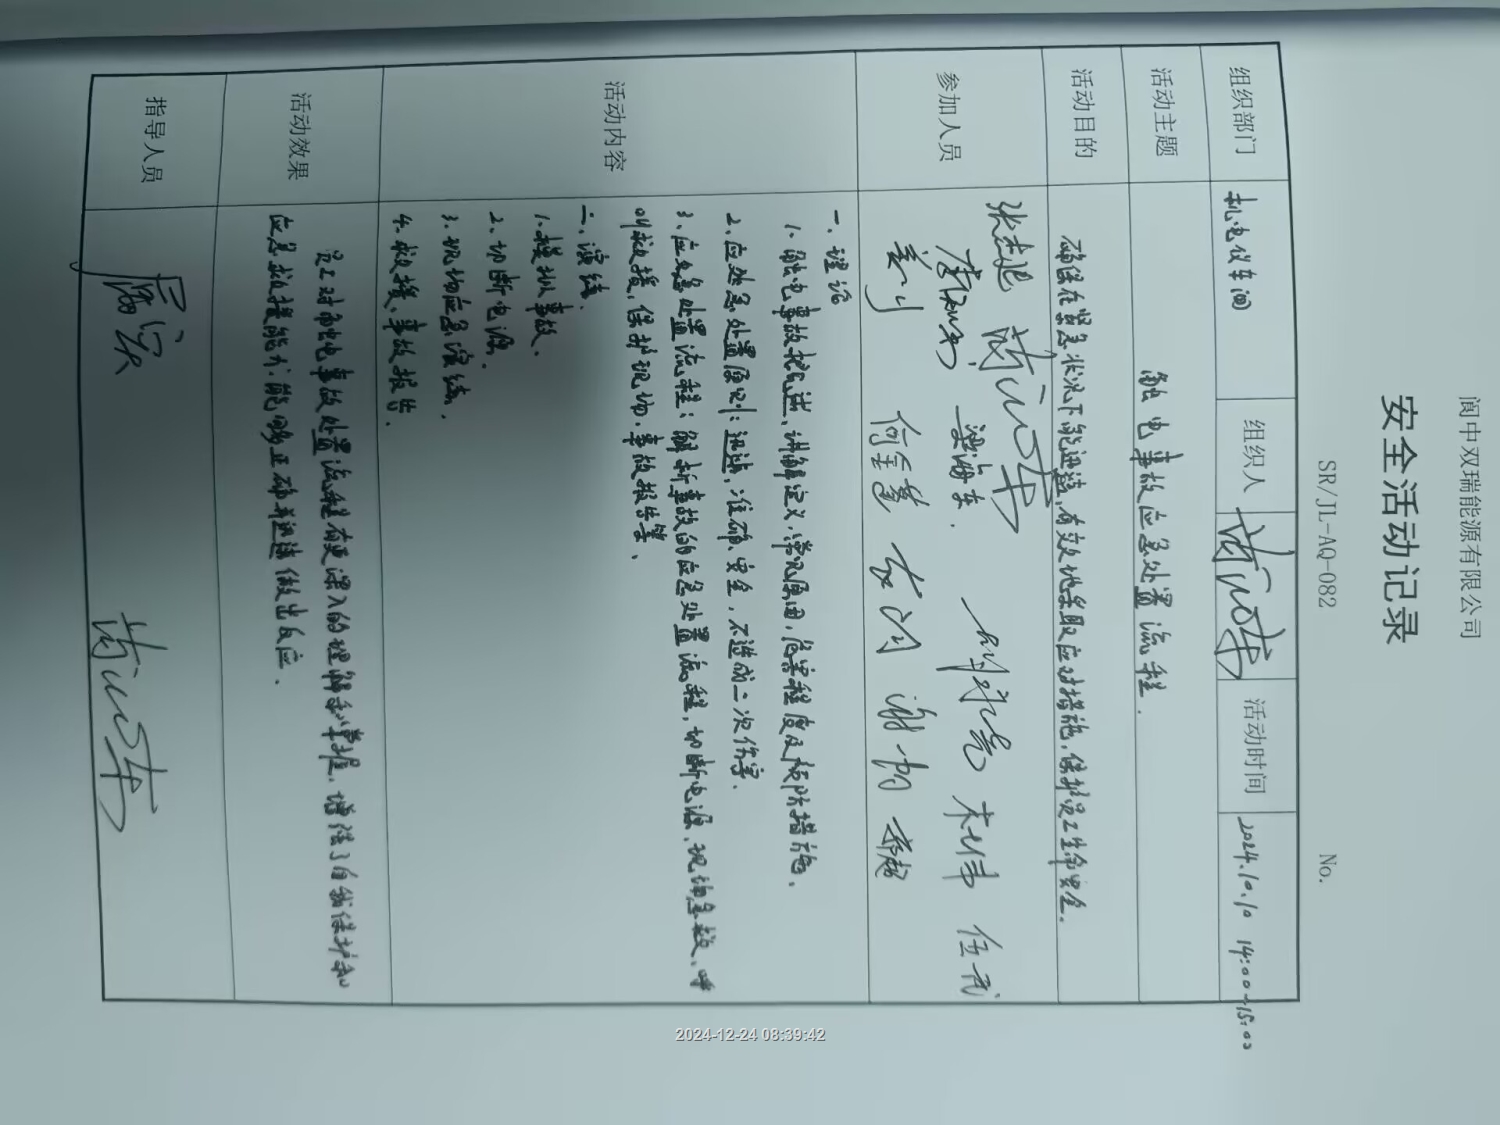 阆中双瑞能源有限公司
安全活动记录
SR/JL-AQ-082 No.
组织部门 机电仪车间 组织人 活动时间 2024.10.10 14:00-15:00
活动主题 触电事故应急处置流程.
活动目的 确保在紧急状况下能迅速,有效地采取应对措施,保护员工生命安全.
参加人员 张志
梁海东.
伍武
何全慧 谢
活动内容 一、理论
1、触电事故概述、讲解定义,常见原因,危害程度及预防措施.
2、应处急处置原则:迅速,准确、安全,不造成二次伤害.
3、应急处置流程:解析事故的应急处置流程,切断电源、现场急救、呼
叫救援、保护现场、事故报告等、
二、演练.
1、模拟事故、
2、切断电源.
3、现场应急演练.
4、救援、事故报告.
活动效果 员工对触电事故处置流程有更深入的理解和掌握,增强了自我保护和
应急救援能力.能够正确并迅速做出反应.
指导人员
2024-12-24 08:39:42